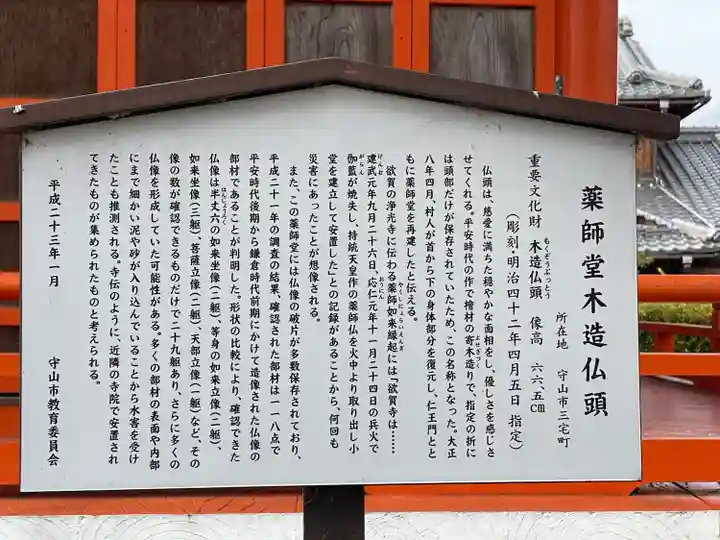 薬師堂木造仏頭
所在地　守山市三宅町
重要文化財　木造仏頭　像高　六六、五㎝
もくぞうぶっとう
（彫刻・明治四十二年四月五日 指定）
仏頭は、慈愛に満ちた穏やかな面相をし、優しさを感じさ
せてくれる。平安時代の作で檜材の寄木造りで、指定の折に
よせぎづく
は頭部だけが保存されていたため、この名称となった。大正
八年四月、村人が首から下の身体部分を復元し、仁王門とと
もに薬師堂を再建したと伝える。
欲賀の浄光寺に伝わる薬師如来縁起には「欲賀寺は……
やくしにょらいえんぎ
建武元年九月二十六日、応仁元年十一月二十四日の兵火で
けんむ
おうにん
伽藍が焼失し、持統天皇作の薬師仏を火中より取り出し小
がらん
堂を建立して安置した」との記録があることから、何回も
災害にあったことが想像される。
また、この薬師堂には仏像の破片が多数保存されており、
平成二十一年の調査の結果、確認された部材は一一八点で
平安時代後期から鎌倉時代前期にかけて造像された仏像の
部材であることが判明した。形状の比較により、確認できた
仏像は半丈六の如来坐像（二躯）、等身の如来立像（二躯）、
はんじょうろく
如来坐像（三躯）、菩薩立像（二躯）、天部立像（一躯）など、その
像の数が確認できるものだけで二十九躯あり、さらに多くの
仏像を形成していた可能性がある。多くの部材の表面や内部
にまで細かい泥や砂が入り込んでいることから水害を受け
たことも推測される。寺伝のように、近隣の寺院で安置され
てきたものが集められたものと考えられる。
平成二十三年一月　守山市教育委員会